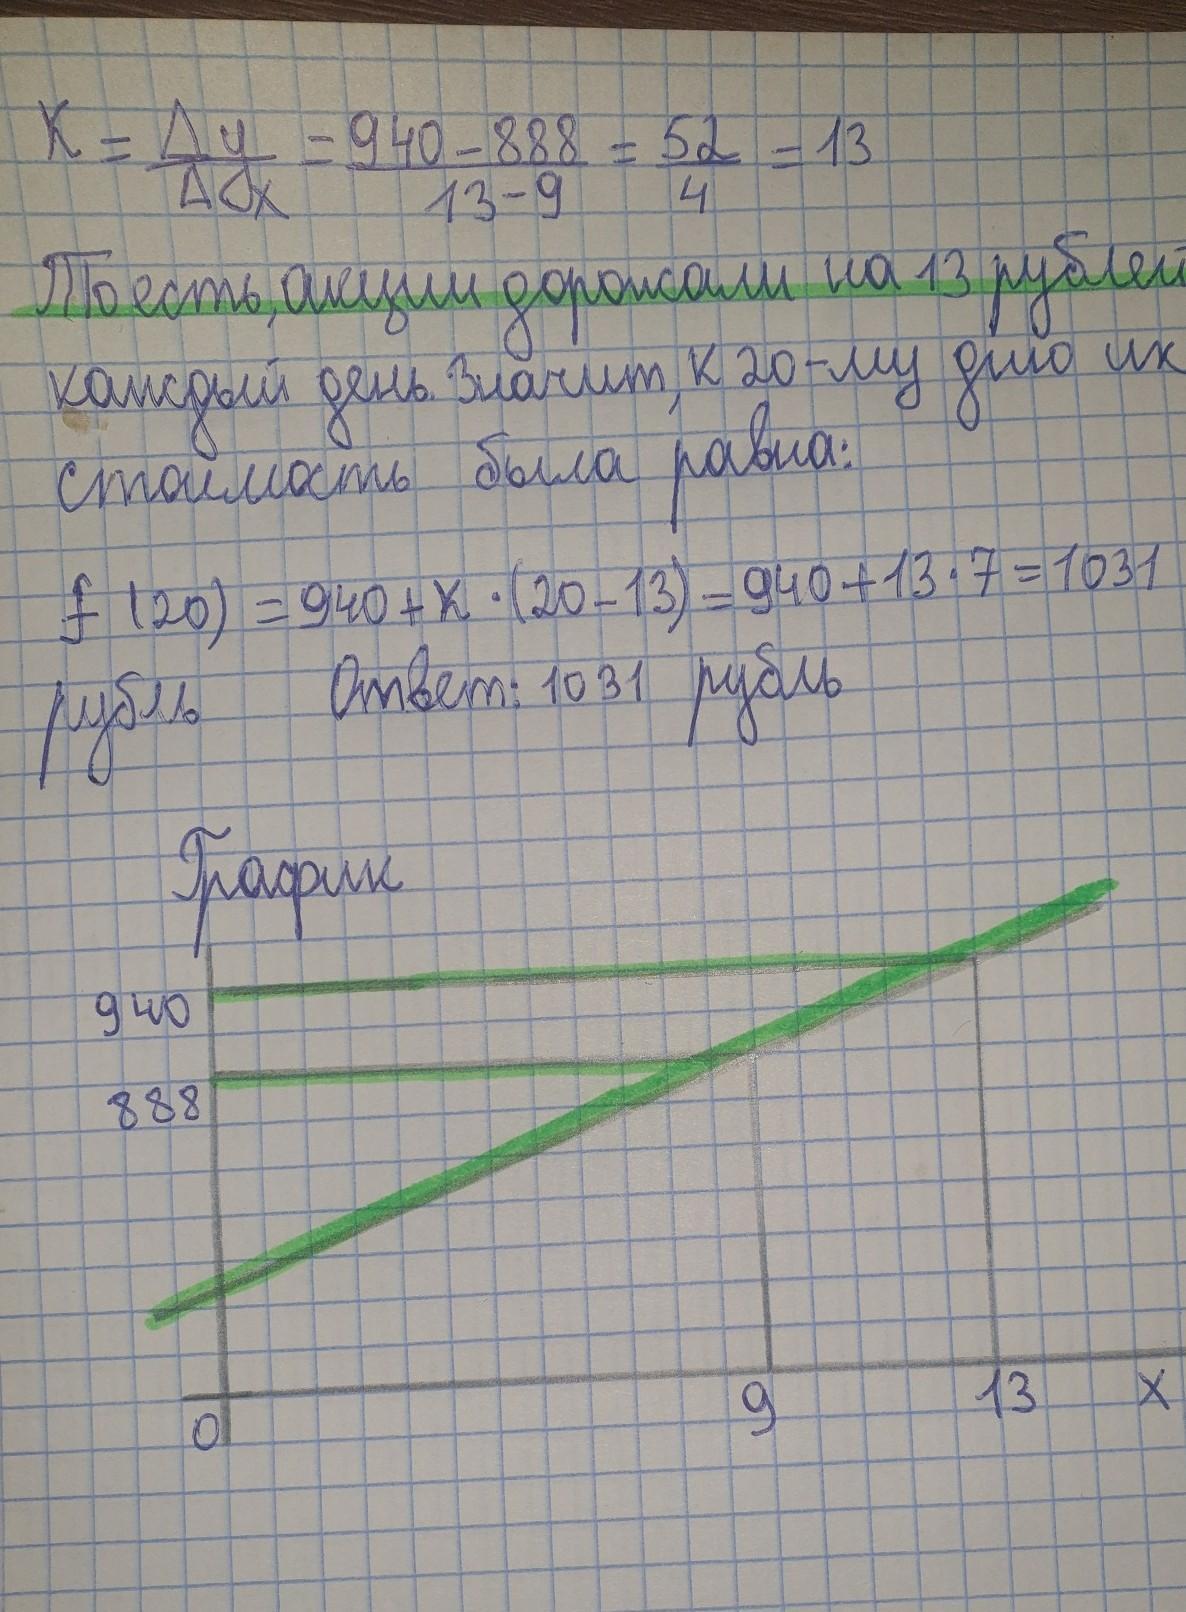 K = Δy/Δx = 940-888/13-9 = 52/4 = 13
То есть, акции дорожали на 13 рублей
каждый день. Значит, к 20-му дню их
стоимость была равна:
f (20) = 940+K·(20-13) = 940+13·7=1031
рубль Ответ: 1031 рубль
График
940
888
0 9 13 X